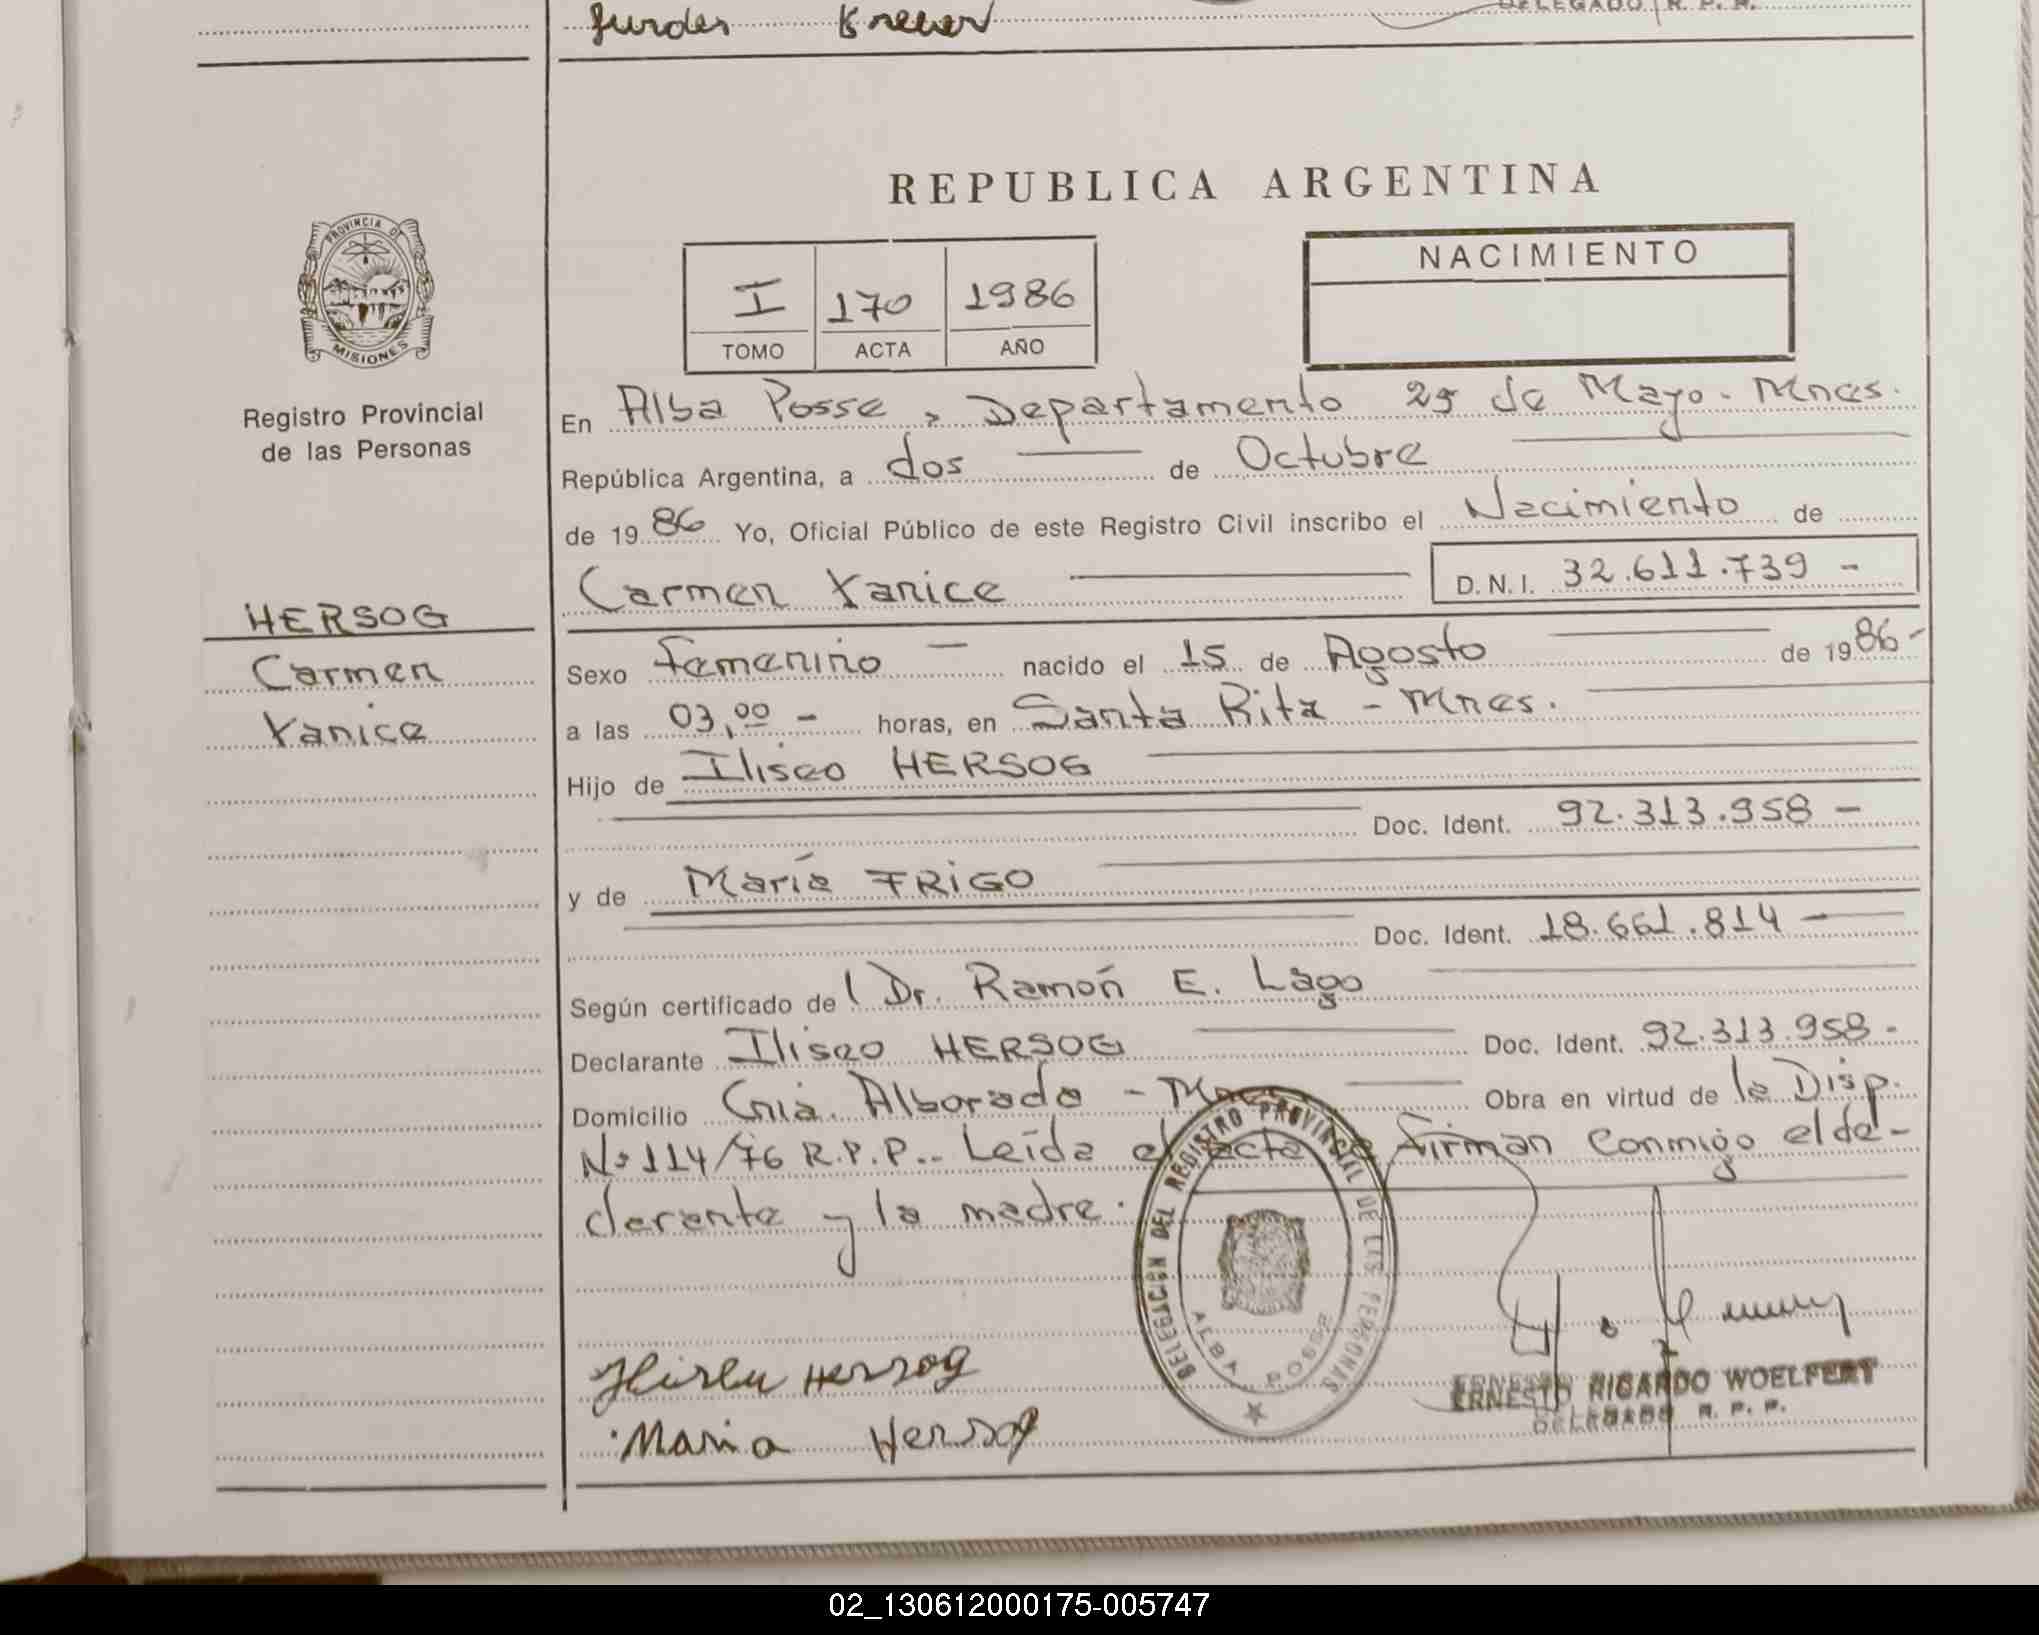 Lurdes Knewer
DELEGADO R. P. P.
REPUBLICA ARGENTINA
PROVINCIA DE
MISIONES
Registro Provincial
de las Personas
I 170 1986
TOMO ACTA AÑO
NACIMIENTO
En Alba Posse, Departamento 25 de Mayo - Mnes.
República Argentina, a dos de Octubre
de 1986 Yo, Oficial Público de este Registro Civil inscribo el Nacimiento de
Carmen Yanice D.N.I. 32.611.739 -
HERSOG
Carmen
Yanice
Sexo femenino - nacido el 15 de Agosto de 1986-
a las 03,00 - horas, en Santa Rita - Mnes.
Hijo de Iliseo HERSOG
Doc. Ident. 92.313.958 -
y de María FRIGO
Doc. Ident. 18.661.814 -
Según certificado del Dr. Ramón E. Lago
Declarante Iliseo HERSOG Doc. Ident. 92.313.958 -
Domicilio Cnia. Alborada - Mnes Obra en virtud de la Disp.
Nº 114/76 R.P.P.. Leída el acta la firman conmigo el de-
clarante y la madre.
DELEGACION DEL REGISTRO PROVINCIAL DE LAS PERSONAS
ALBA POSSE
Herzog
Maria Hersog
ERNESTO RICARDO WOELFERT
DELEGADO R. P. P.
02_130612000175-005747